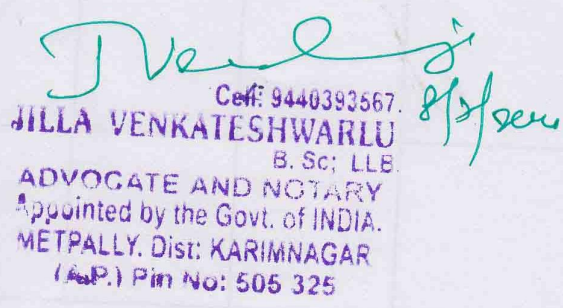 Cell: 9440393567.
JILLA VENKATESHWARLU
B. Sc; LLB
ADVOCATE AND NOTARY
Appointed by the Govt. of INDIA.
METPALLY. Dist: KARIMNAGAR
(A.P.) Pin No: 505 325